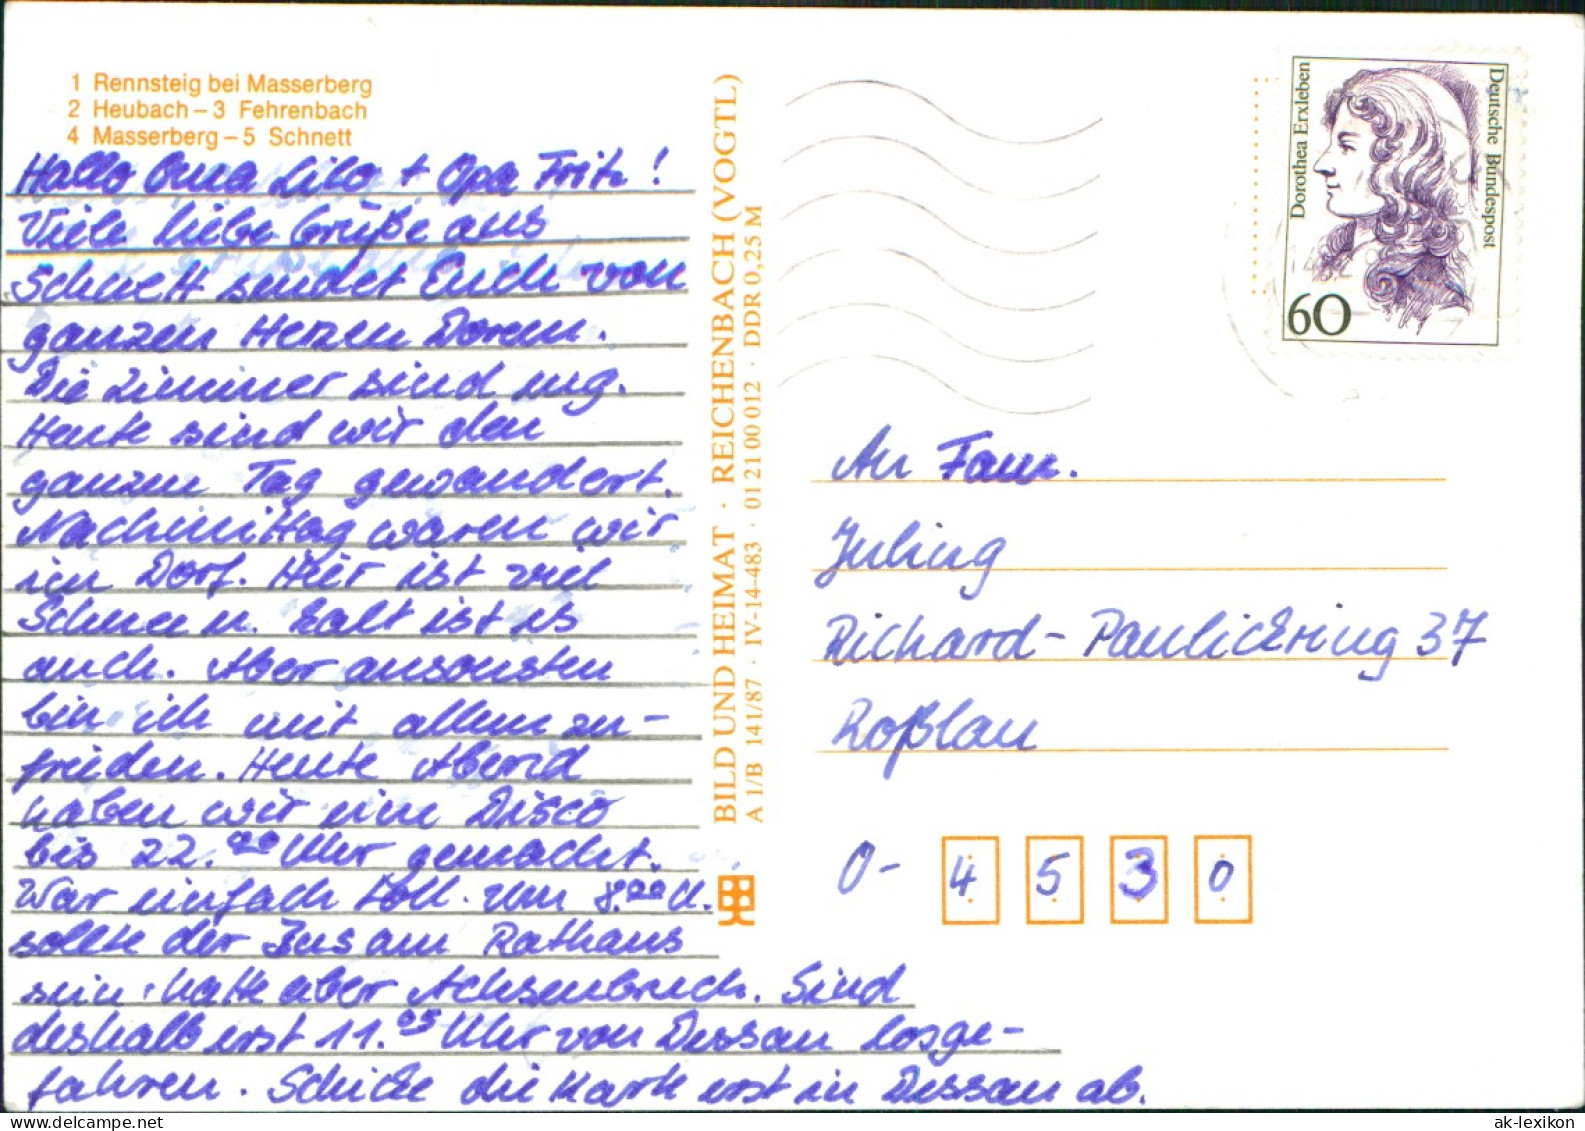 1 Rennsteig bei Masserberg
2 Heubach – 3 Fehrenbach
4 Masserberg – 5 Schnett
Hallo Oma Lilo + Opa Fritz!
Viele liebe Grüße aus
Schnett sendet Euch von
ganzen Herzen Doreen.
Die Zimmer sind mg.
Heute sind wir den
ganzen Tag gewandert.
Nachmittag waren wir
im Dorf. Hier ist viel
Schnee u. kalt ist es
auch. Aber ansonsten
bin ich mit allem zu-
frieden. Heute Abend
haben wir eine Disco
bis 22.00 Uhr gemacht.
War einfach toll. Um 8.00 U.
sollte der Bus am Rathaus
sein, hatte aber Achsenbruch. Sind
deshalb erst 11.05 Uhr von Dessau losge-
fahren. Schicke die Karte erst in Dessau ab.
BILD UND HEIMAT · REICHENBACH (VOGTL)
A 1/B 141/87 · IV-14-483 · 01 21 00 012 · DDR 0,25 M
Dorothea Erxleben
Deutsche Bundespost
60
An Fam.
Juling
Richard-Paulickring 37
Roßlau
O- 4 5 3 0
ak-lexikon
www.delcampe.net